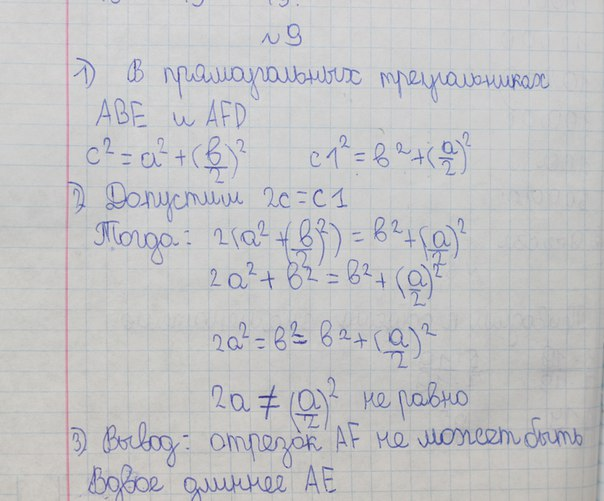 №9
1) В прямоугальных треугальниках
ABE и AFD
c² = a² + (в/2)² c1² = в² + (a/2)²
2) Допустим 2c = c1
Тогда: 2(a² + (в/2)²) = в² + (a/2)²
2a² + в² = в² + (a/2)²
2a² = в² = в² + (a/2)²
2a ≠ (a/2)² не равно
3) Вывод: отрезок AF не может быть
Вдвое длиннее AE